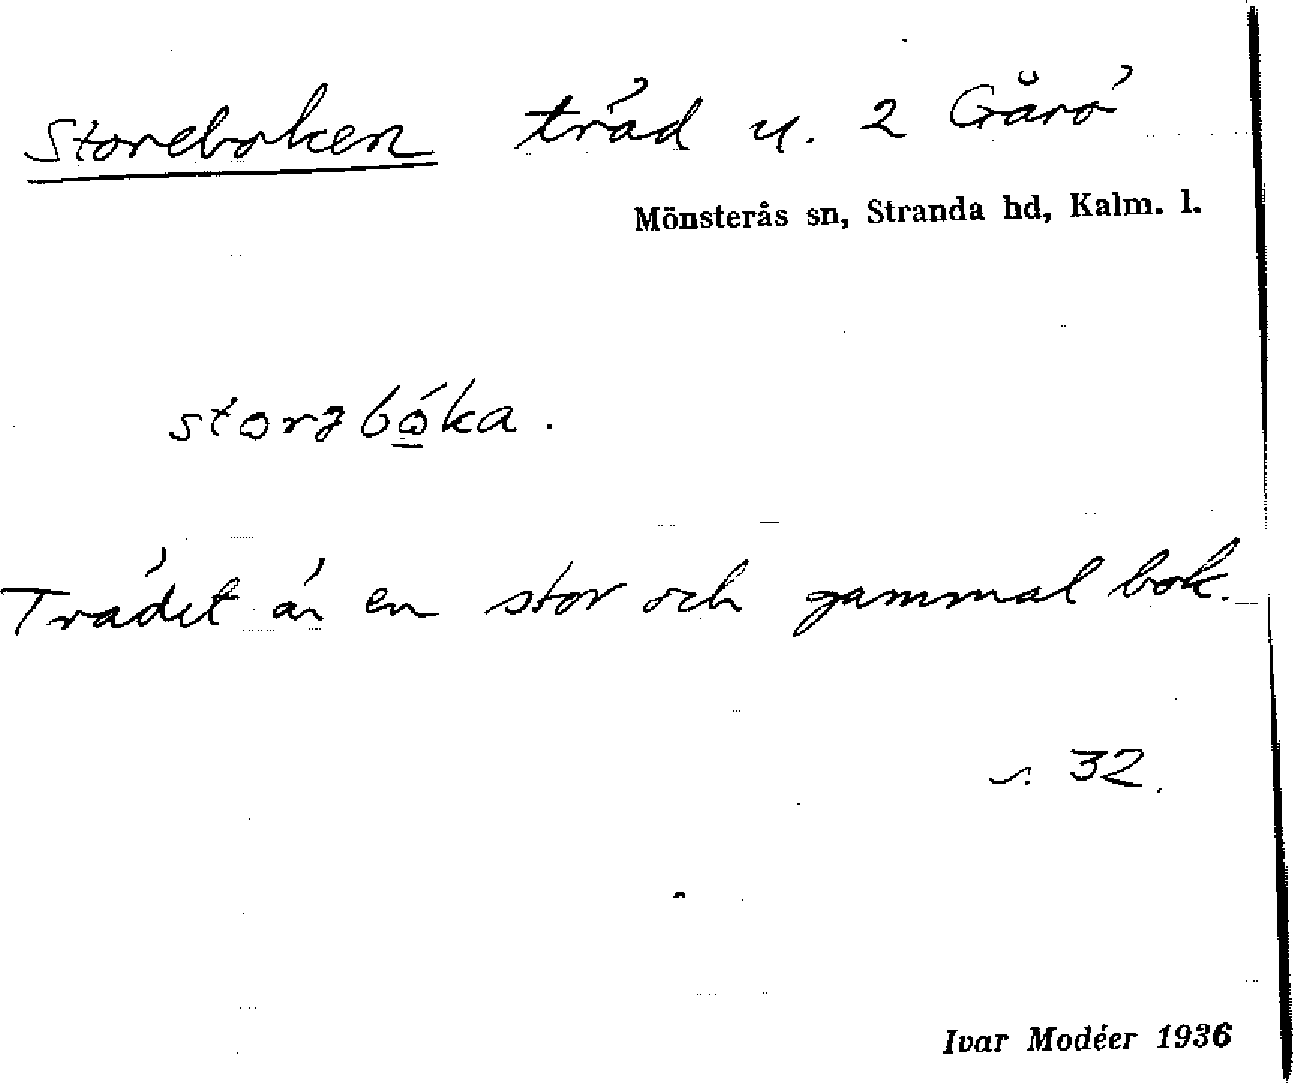 Storeboken träd u. 2 Gårö
Mönsterås sn, Stranda hd, Kalm. l.
storɜbó̱ka.
Trädet är en stor och gammal bok.
s. 32.
Ivar Modéer 1936